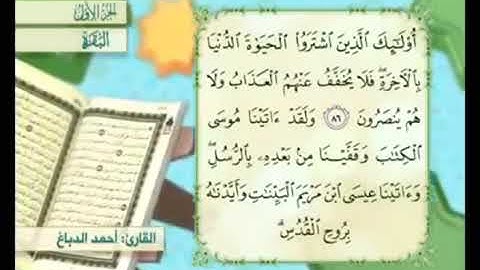 الجزء الأول
البقرة
أُوْلَـٰٓئِكَ ٱلَّذِينَ ٱشْتَرَوُا۟ ٱلْحَيَوٰةَ ٱلدُّنْيَا
بِٱلْـَٔاخِرَةِ ۖ فَلَا يُخَفَّفُ عَنْهُمُ ٱلْعَذَابُ وَلَا
هُمْ يُنصَرُونَ ٨٦ وَلَقَدْ ءَاتَيْنَا مُوسَى
ٱلْكِتَـٰبَ وَقَفَّيْنَا مِنۢ بَعْدِهِۦ بِٱلرُّسُلِ ۖ
وَءَاتَيْنَا عِيسَى ٱبْنَ مَرْيَمَ ٱلْبَيِّنَـٰتِ وَأَيَّدْنَـٰهُ
بِرُوحِ ٱلْقُدُسِ ۗ
القارئ: أحمد الدباغ